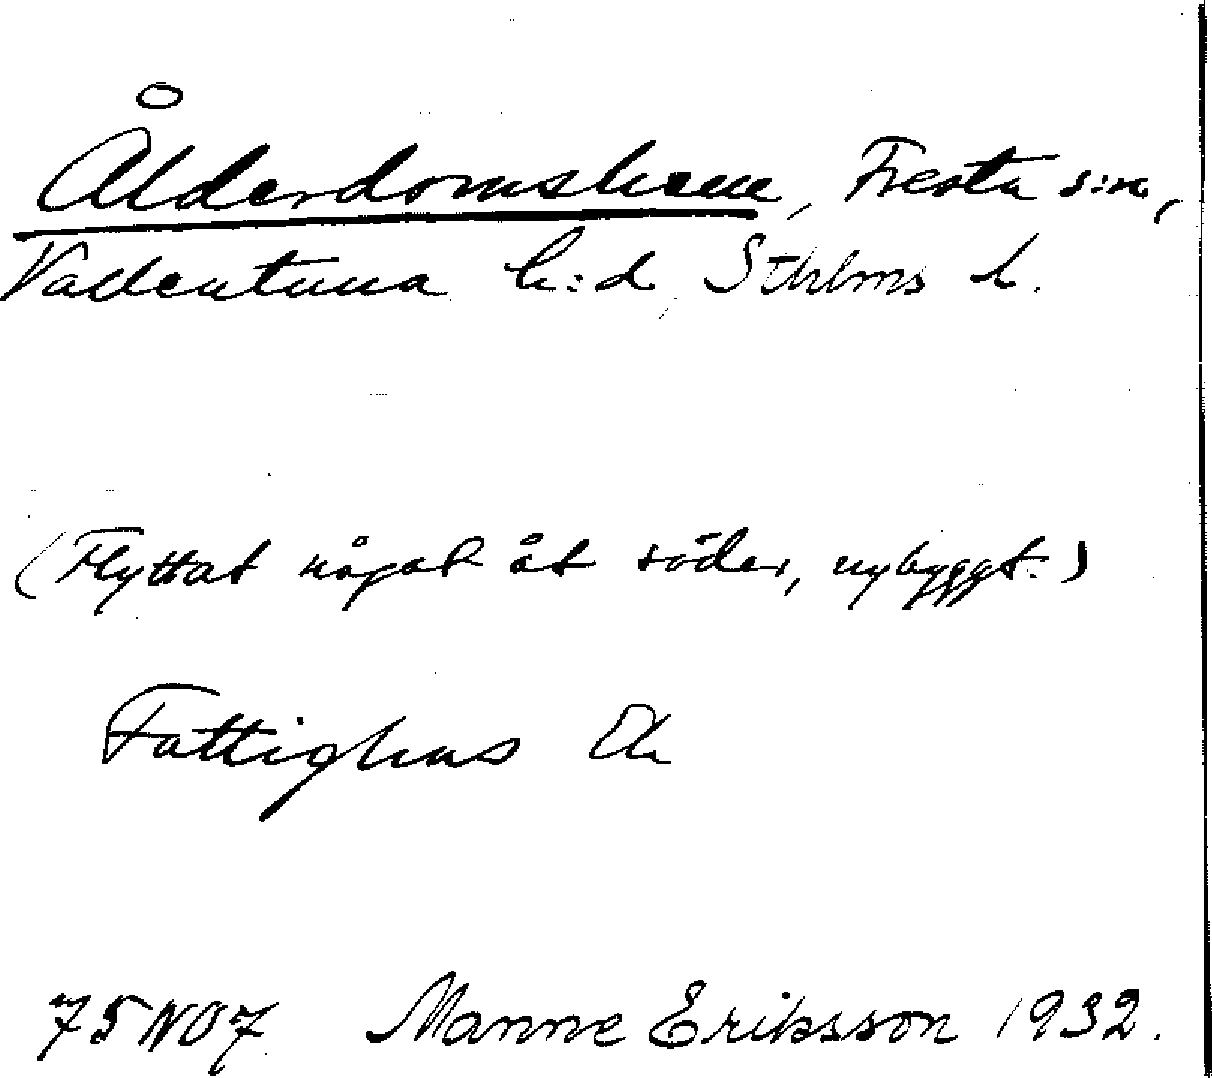 Ålderdomshem, Fresta s:n,
Vallentuna h:d, Sthlms l.
(Flyttat något åt söder, nybyggt.)
Fattighus Ek
75 NO 7 Manne Eriksson 1932.